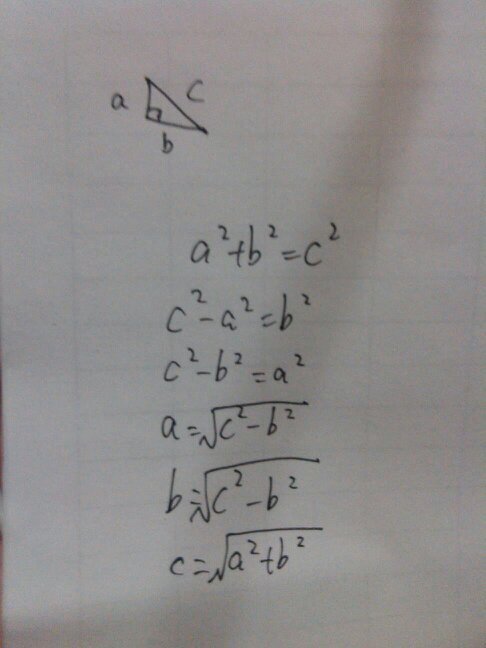 a c
b
a²+b²=c²
c²-a²=b²
c²-b²=a²
a=√c²-b²
b=√c²-b²
c=√a²+b²